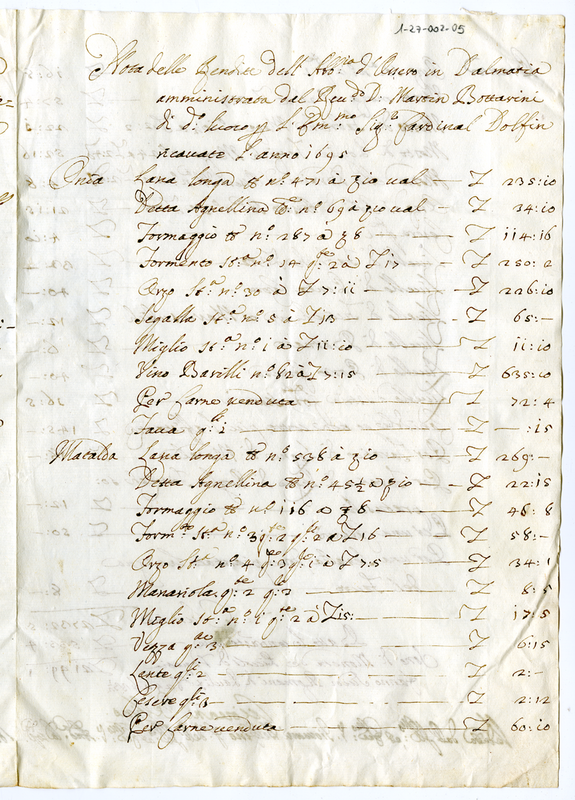 1-27-002-05
Nota delle Rendite dell' Abb:ia d'Ossero in Dalmatia
amministrata dal Reu:do D: Martin Bottarini
di d:o luoco p l'Em:mo Sig:r Cardinal Dolfin
ricauate l'anno 1695
Lana longa ℔ n:o 471 à ʒ 10 val — L 235:10
Detta Agnellina ℔ n:o 69 à ʒ 10 val — L 34:10
Formaggio ℔ n:o 287 a ʒ 8 — L 114:16
Formento St:a n:o 14 q:te 2 à L 17 — L 250:2
Orzo St:a n:o 30 à L 7:11 — L 226:10
Segalla St:a n:o 5 à L 13 — L 65:—
Miglio St:a n:o 1 a L 11:10 — L 11:10
Vino Barilli n:o 82 à L 7:15 — L 635:10
Per Carne venduta — L 72:4
Faua q:te 1 — L —:15
Lana longa ℔ n:o 538 à ʒ 10 — L 269:—
Detta Agnellina ℔ n:o 45½ a ʒ 10 — L 22:15
Formaggio ℔ n:o 116 a ʒ 8 — L 46:8
Form:to St:a n:o 3 q:te 2 q:te 2 a L 16 — L 58:—
Orzo St:a n:o 4 q:te 3 q:te 1 à L 7:5 — L 34:1
q:te 2 q:te 2 — L 8:5
Meglio St:a n:o 1 q:te 2 à L 15: — L 17:5
Vezza q:te 3 — L 6:15
Lente q:te 2 — L 2:—
q:te 3 — L 2:12
Per Carne venduta — L 60:10